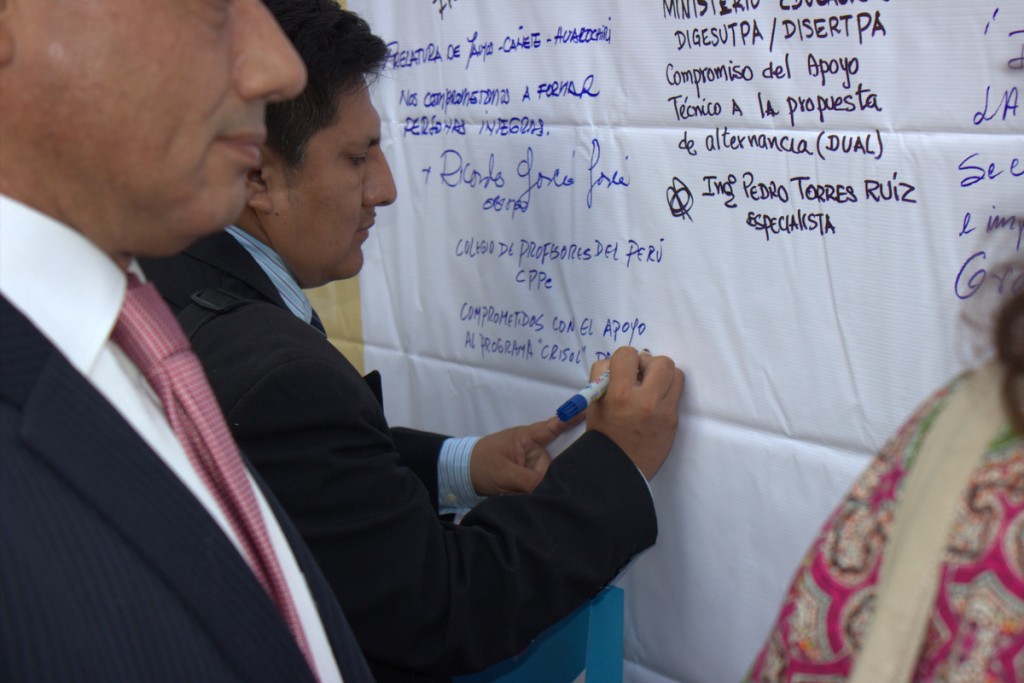 PRELATURA DE YAUYOS - CAÑETE - HUAROCHIRI
NOS COMPROMETEMOS A FORMAR
PERSONAS INTEGRAS.
+ Ricardo García García
OBISPO
COLEGIO DE PROFESORES DEL PERÚ
CPPe
COMPROMETIDOS CON EL APOYO
AL PROGRAMA "CRISOL"
MINISTERIO EDUCACIÓN
DIGESUTPA/DISERTPA
Compromiso del Apoyo
Técnico A lA propuesta
de alternancia (DUAL)
Ingº PEDRO TORRES RUÍZ
ESPECIALISTA
LA